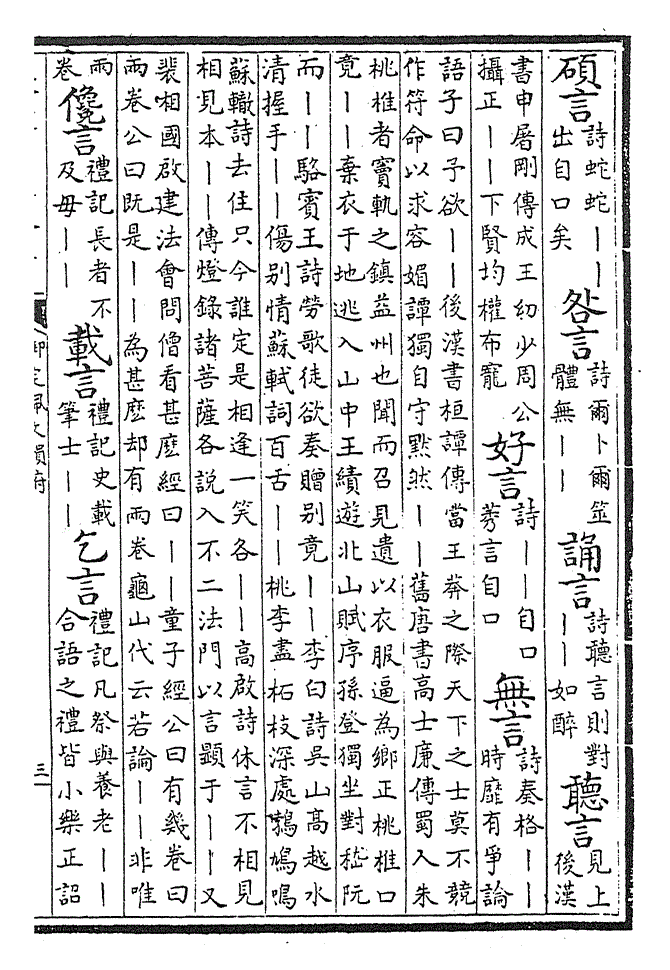 碩言詩蛇蛇丨丨出自口矣咎言詩爾卜爾筮體無丨丨誦言詩聽言則對丨丨如醉聽言見上後漢
書申屠剛傳成王幼少周公攝正丨丨下賢均權布寵好言詩丨丨自口莠言自口無言詩奏格丨丨時靡有爭論
語子曰予欲丨丨後漢書桓譚傳當王莽之際天下之士莫不競
作符命以求容媚譚獨自守默然丨丨舊唐書高士廉傳蜀人朱
桃椎者竇軌之鎮益州也聞而召見遺以衣服逼為鄉正桃椎口
竟丨丨棄衣于地逃入山中王績遊北山賦序孫登獨坐對嵇阮
而丨丨駱賓王詩勞歌徒欲奏贈别竟丨丨李白詩吳山高越水
清握手丨丨傷别情蘇軾詞百舌丨丨桃李盡柘枝深處鵓鳩鳴
蘇轍詩去住只今誰定是相逢一笑各丨丨高啟詩休言不相見
相見本丨丨傳燈錄諸菩薩各說入不二法門以言顯于丨丨又
裴相國啟建法會問僧看甚麽經曰丨丨童子經公曰有幾卷曰
兩卷公曰既是丨丨為甚麽却有兩卷龜山代云若論丨丨非唯
兩卷儳言禮記長者不及毋丨丨載言禮記史載筆士丨丨乞言禮記凡祭與養老丨丨合語之禮皆小樂正詔
御定佩文韻府
三